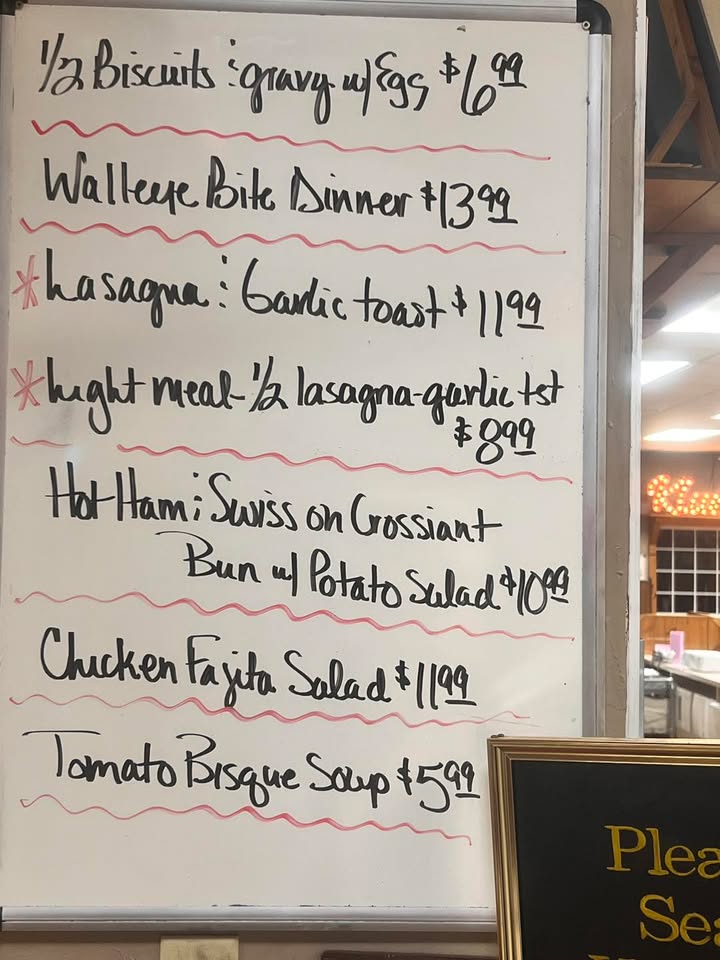 1/2 Biscuits & gravy w/ Eggs $6.99
Walleye Bite Dinner $13.99
*Lasagna & Garlic toast $11.99
*Light meal-1/2 lasagna-garlic tst
$8.99
Hot Ham & Swiss on Crossiant
Bun w/ Potato Salad $10.99
Chicken Fajita Salad $11.99
Tomato Bisque Soup $5.99
Plea
Sea